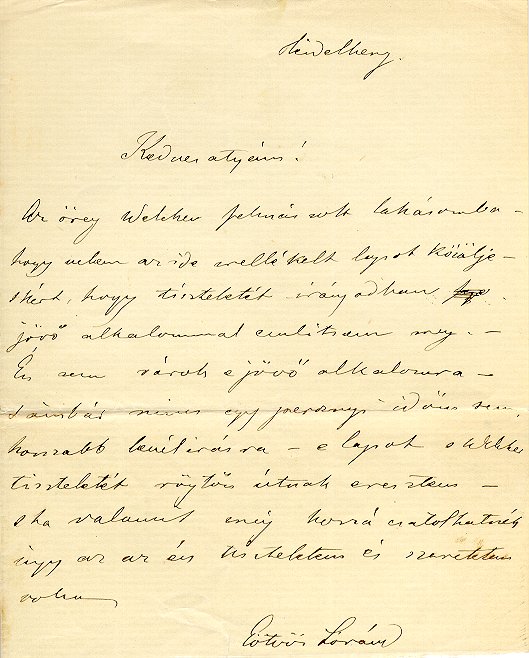 Heidelberg.
Kedves atyám!
Az öreg Welcker felmászott lakásomba –
hogy velem az ide mellékelt lapot közölje –
s kért, hogy tiszteletét irányodban
jövő alkalommal emlitsem meg. –
Én nem várok e jövő alkalomra –
s ámbár nincs egy percznyi időm sem
hosszabb levélirásra – e lapot s Welcker
tiszteletét rögtön útnak eresztem –
s ha valamit még hozzá csatolhatnék
úgy az az én tiszteletem és szeretetem
volna
Eötvös Loránd